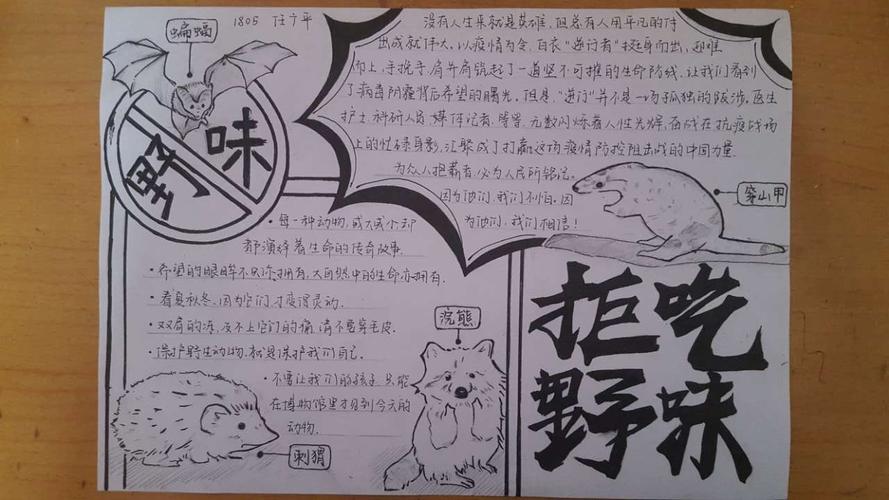 蝙蝠
1805 任
野味
没有人生来就是英雄，但总有人用平凡的付
出成就伟大。以疫情为令，白衣“逆行者”挺身而出，迎难
而上，手挽手、肩并肩筑起了一道坚不可摧的生命防线，让我们看到
了病毒阴霾背后希望的曙光。但是，“逆行”并不是一场孤独的跋涉，医生
护士、科研人员、媒体记者、警察，无数闪烁着人性光辉，奋战在抗疫战场
上的忙碌身影，汇聚成了打赢这场疫情防控阻击战的中国力量。
为众人抱薪者，必为人民所铭记。
因为他们，我们不怕。因
为他们，我们相信！
穿山甲
·每一种动物，或大或小却
都演绎着生命的传奇故事。
·希望的眼眸不只你拥有，大自然中的生命亦拥有。
·春夏秋冬，因为它们才变得灵动。
·双肩的冻，及不上它们的痛，请不要穿毛皮。
·保护野生动物，就是保护我们自己。
·不要让我们的孩子，只能
在博物馆里才见到今天的
动物。
浣熊
刺猬
拒吃
野味